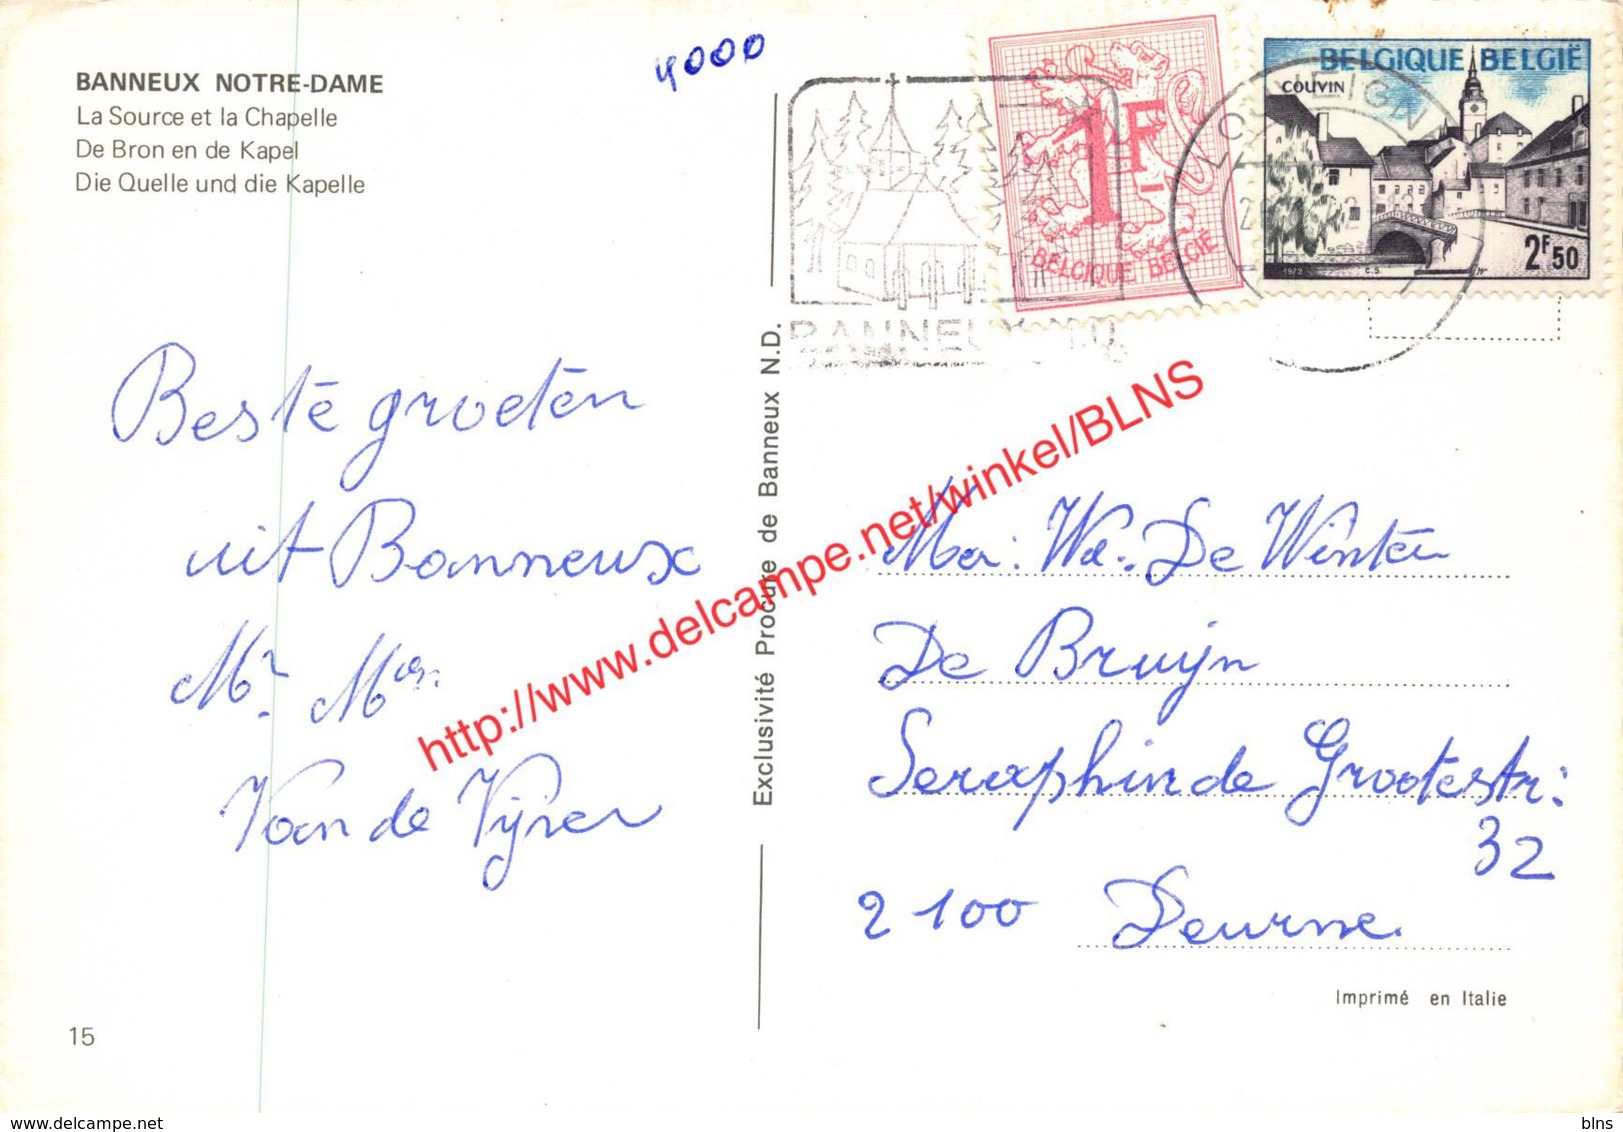 4000
BANNEUX NOTRE-DAME
La Source et la Chapelle
De Bron en de Kapel
Die Quelle und die Kapelle
BELGIQUE BELGIË
COUVIN
1972 C.S.
2F50
1F
BELGIQUE BELGIË
BANNEUX N.D.
Beste groeten
uit Banneux
Mr. Mer.
Van de Vijver
Exclusivité Procure de Banneux N.D.
http://www.delcampe.net/winkel/BLNS
De Winter
De Bruijn
Seraphin de Grootestr:
32
2100 Deurne.
Imprimé en Italie
15
www.delcampe.net
blns